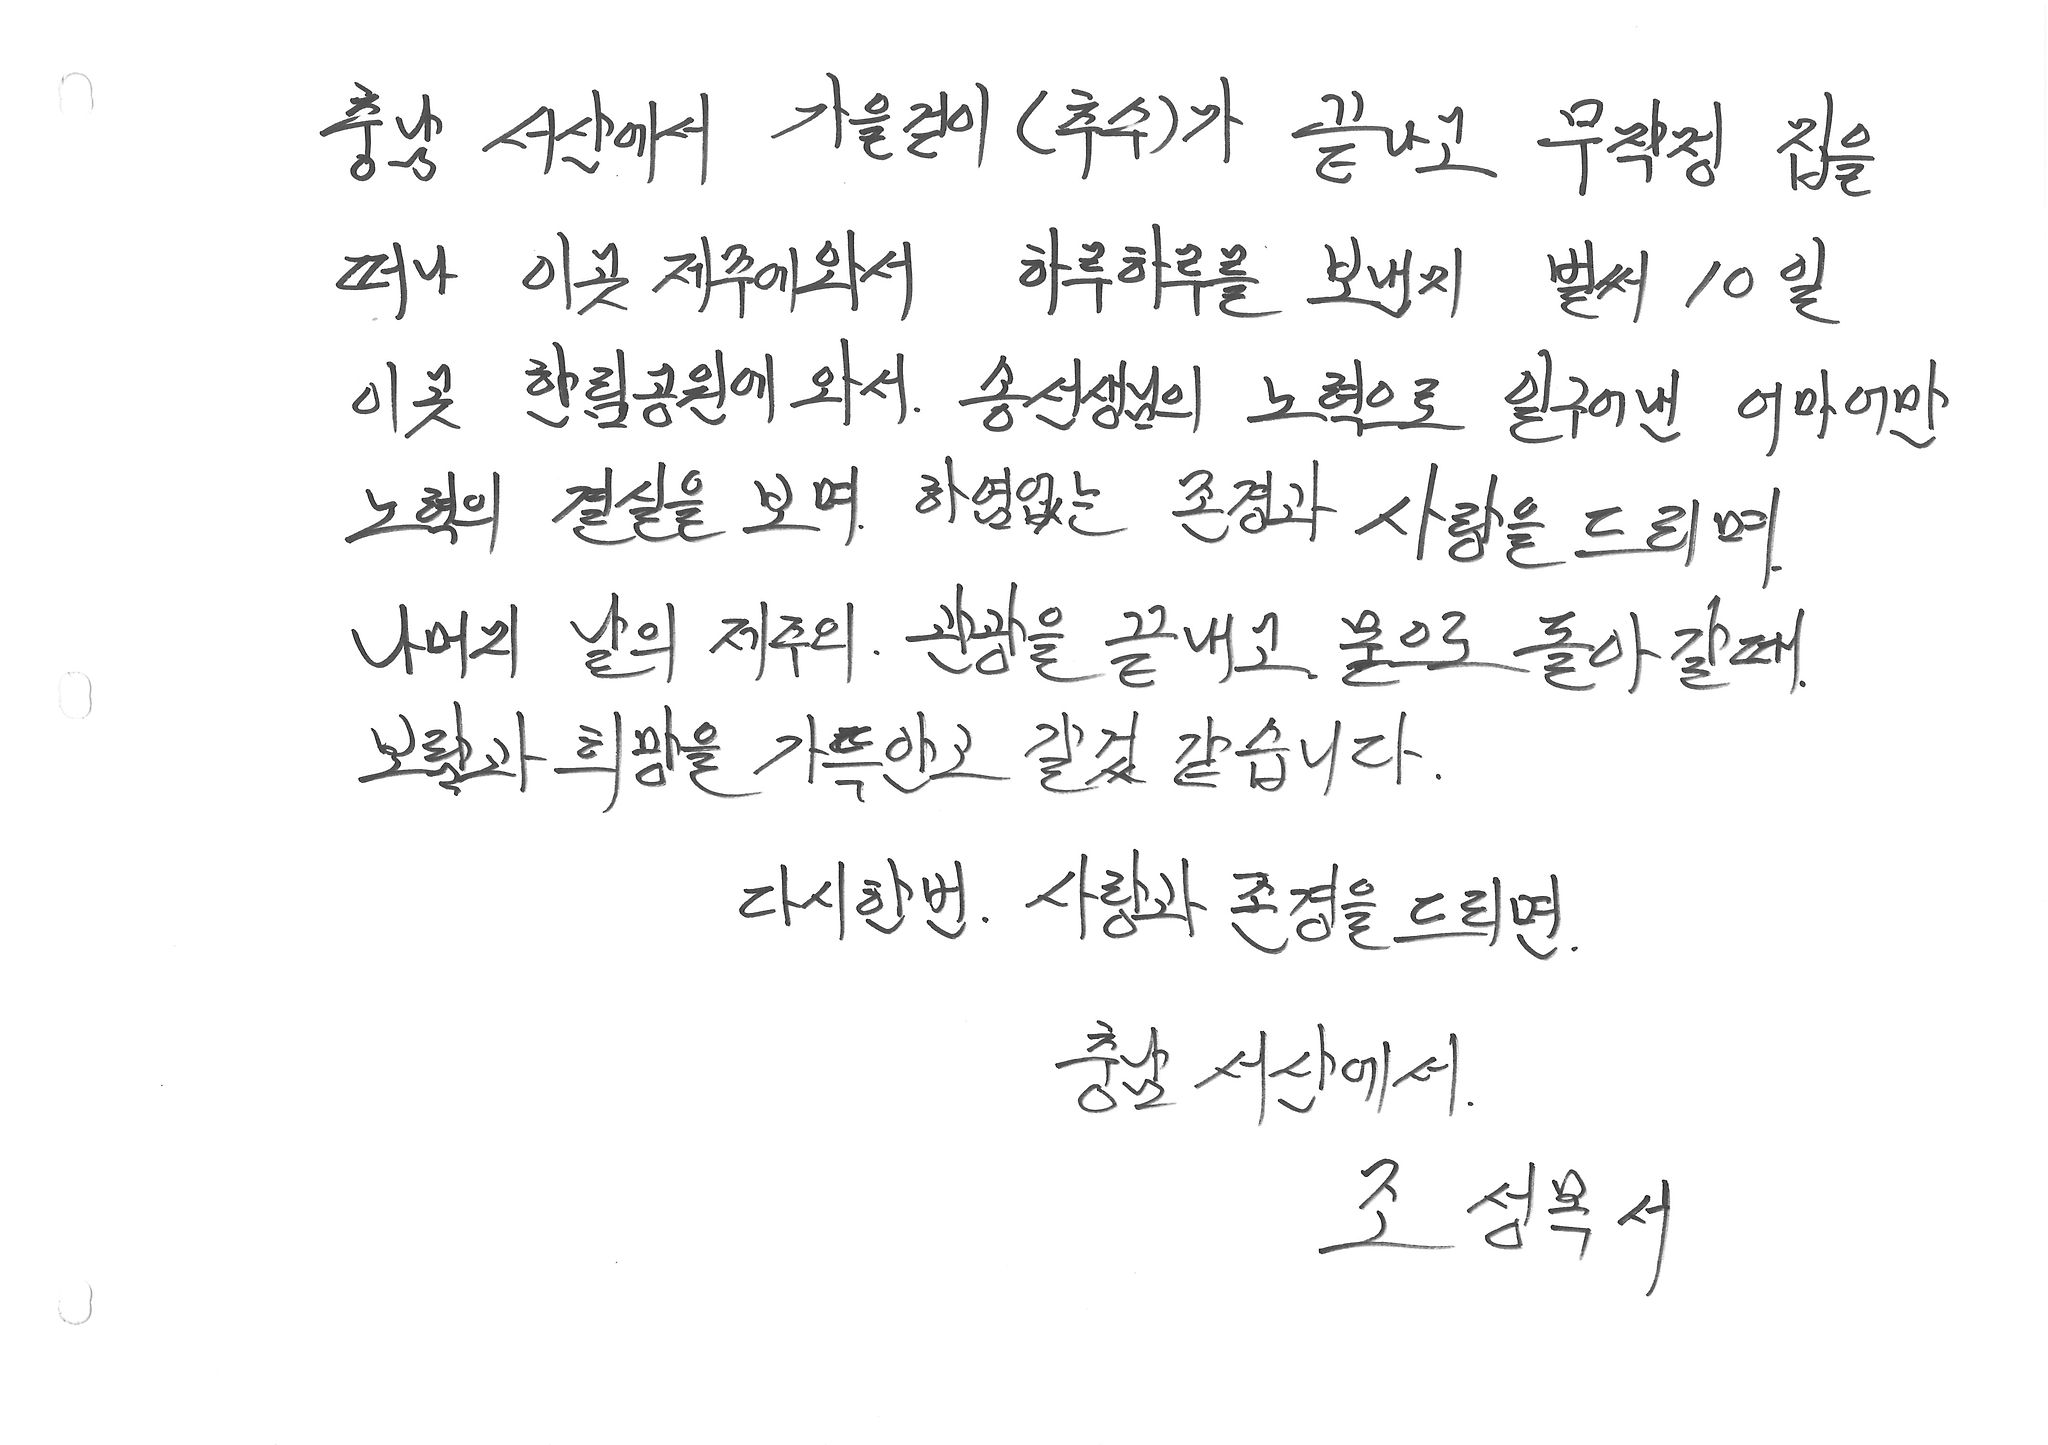 충남 서산에서 가을걷이 (추수)가 끝나고 무작정 집을
떠나 이곳 제주에와서 하루하루를 보낸지 벌써 10일
이곳 한림공원에 와서. 송선생님의 노력으로 일구어낸 어마어만
노력의 결실을 보며. 하염없는 존경과 사랑을 드리며.
나머지 날의 제주의. 관광을 끝내고. 뭍으로 돌아 갈때.
보람과 희망을 가득안고 갈것 같습니다.
다시한번. 사랑과 존경을 드리면.
충남 서산에서.
조 성목 서